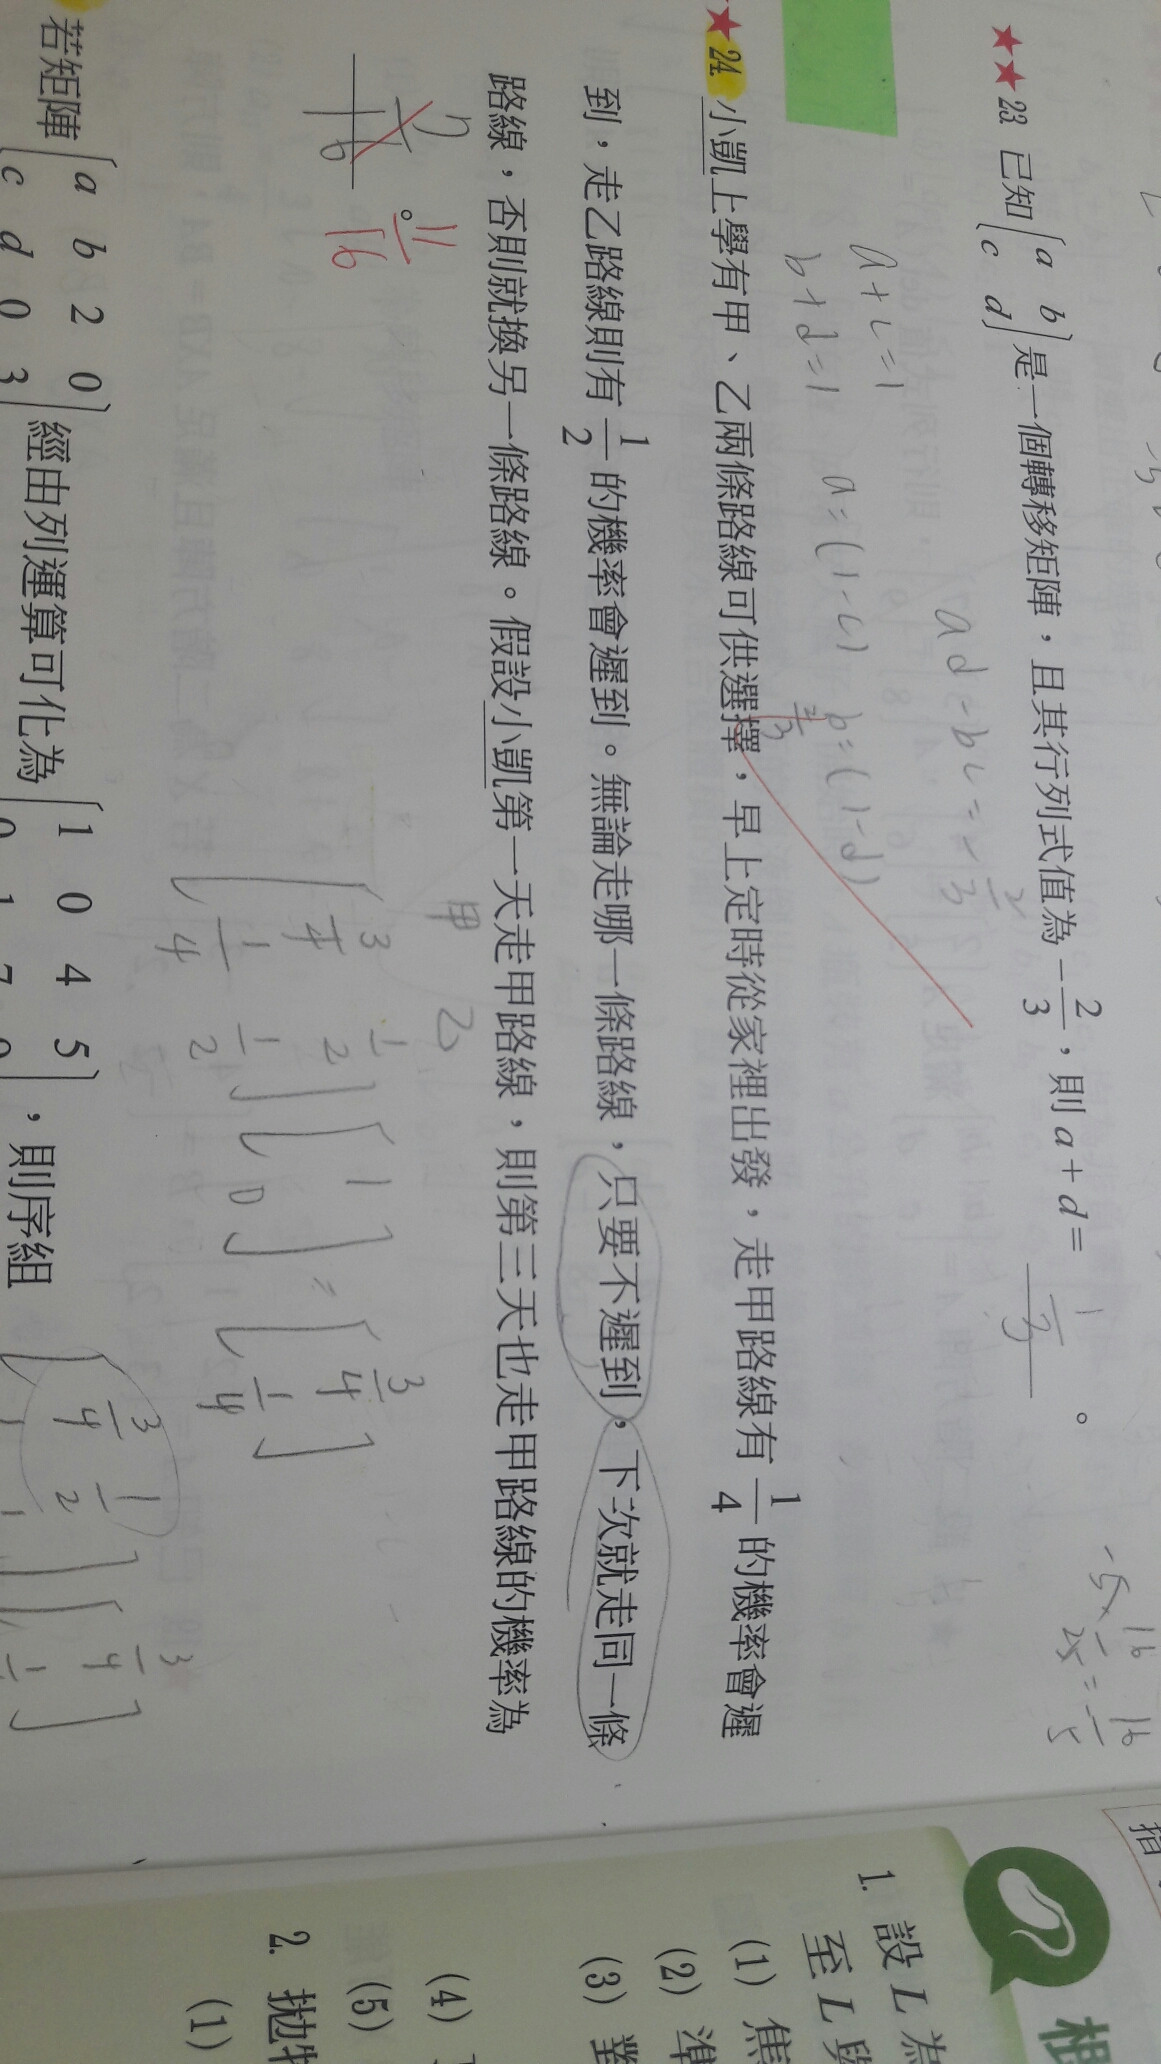 ★★ 23. 已知 [a b; c d] 是一個轉移矩陣，且其行列式值為 -2/3，則 a + d = 1/3 。
ad - bc = -2/3
a + c = 1
b + d = 1
a = (1-c) b = (1-d)
-5 × 16/25 = -16/5
★ 24. 小凱上學有甲、乙兩條路線可供選擇，早上定時從家裡出發，走甲路線有 1/4 的機率會遲
到，走乙路線則有 1/2 的機率會遲到。無論走哪一條路線，只要不遲到，下次就走同一條
路線，否則就換另一條路線。假設小凱第一天走甲路線，則第三天也走甲路線的機率為
。 11/16
甲 乙
[3/4 1/2; 1/4 1/2] [1; 0] = [3/4; 1/4]
若矩陣 [a b 2 0; c d 0 3] 經由列運算可化為 [1 0 4 5
，則序組
3/4 1/2
1. 設 L 為
至 L 與
(1) 焦
(2) 準
(3) 對
(4)
(5)
2. 拋物
(1)